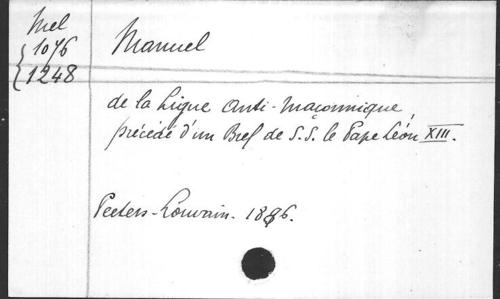 Mel
1076
1248
Manuel
de la Ligue Anti-Maçonnique,
précédé d'un Bref de S.S. le Pape Léon XIII.
Peeters-Louvain. 1886.